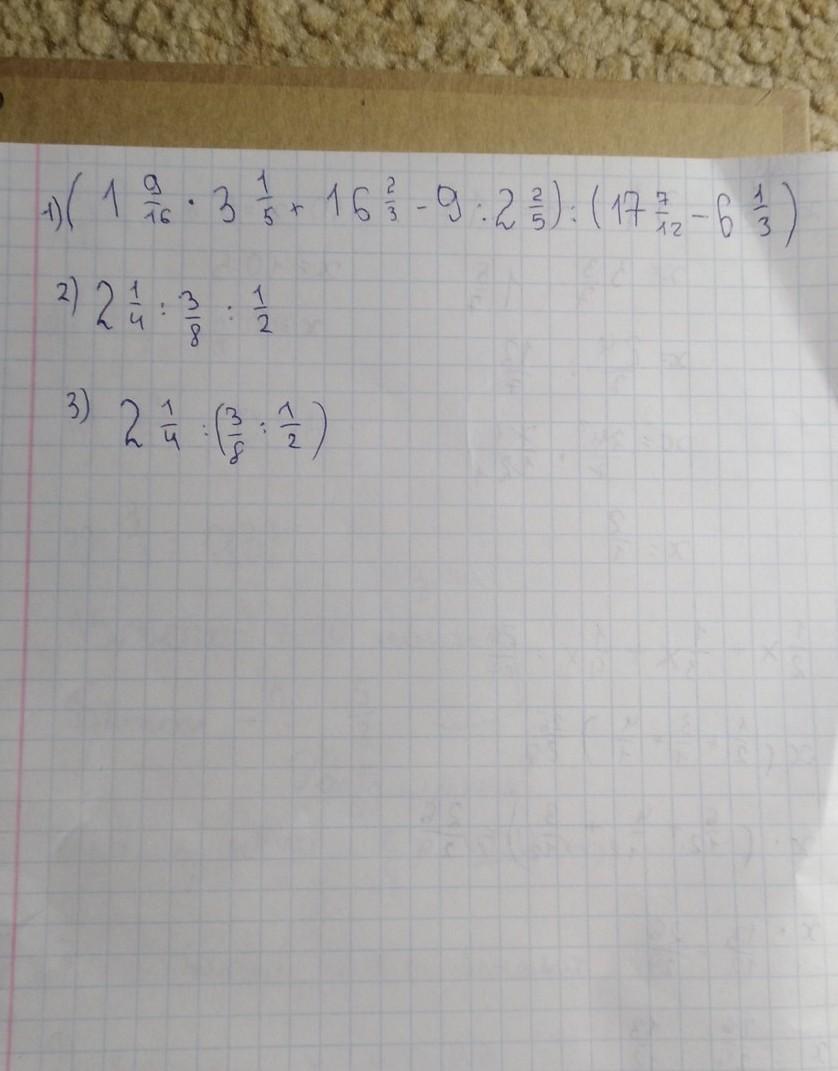 1) (1 9/16 · 3 1/5 + 16 2/3 - 9 : 2 2/5) : (17 7/12 - 6 1/3)
2) 2 1/4 : 3/8 : 1/2
3) 2 1/4 : (3/8 : 1/2)